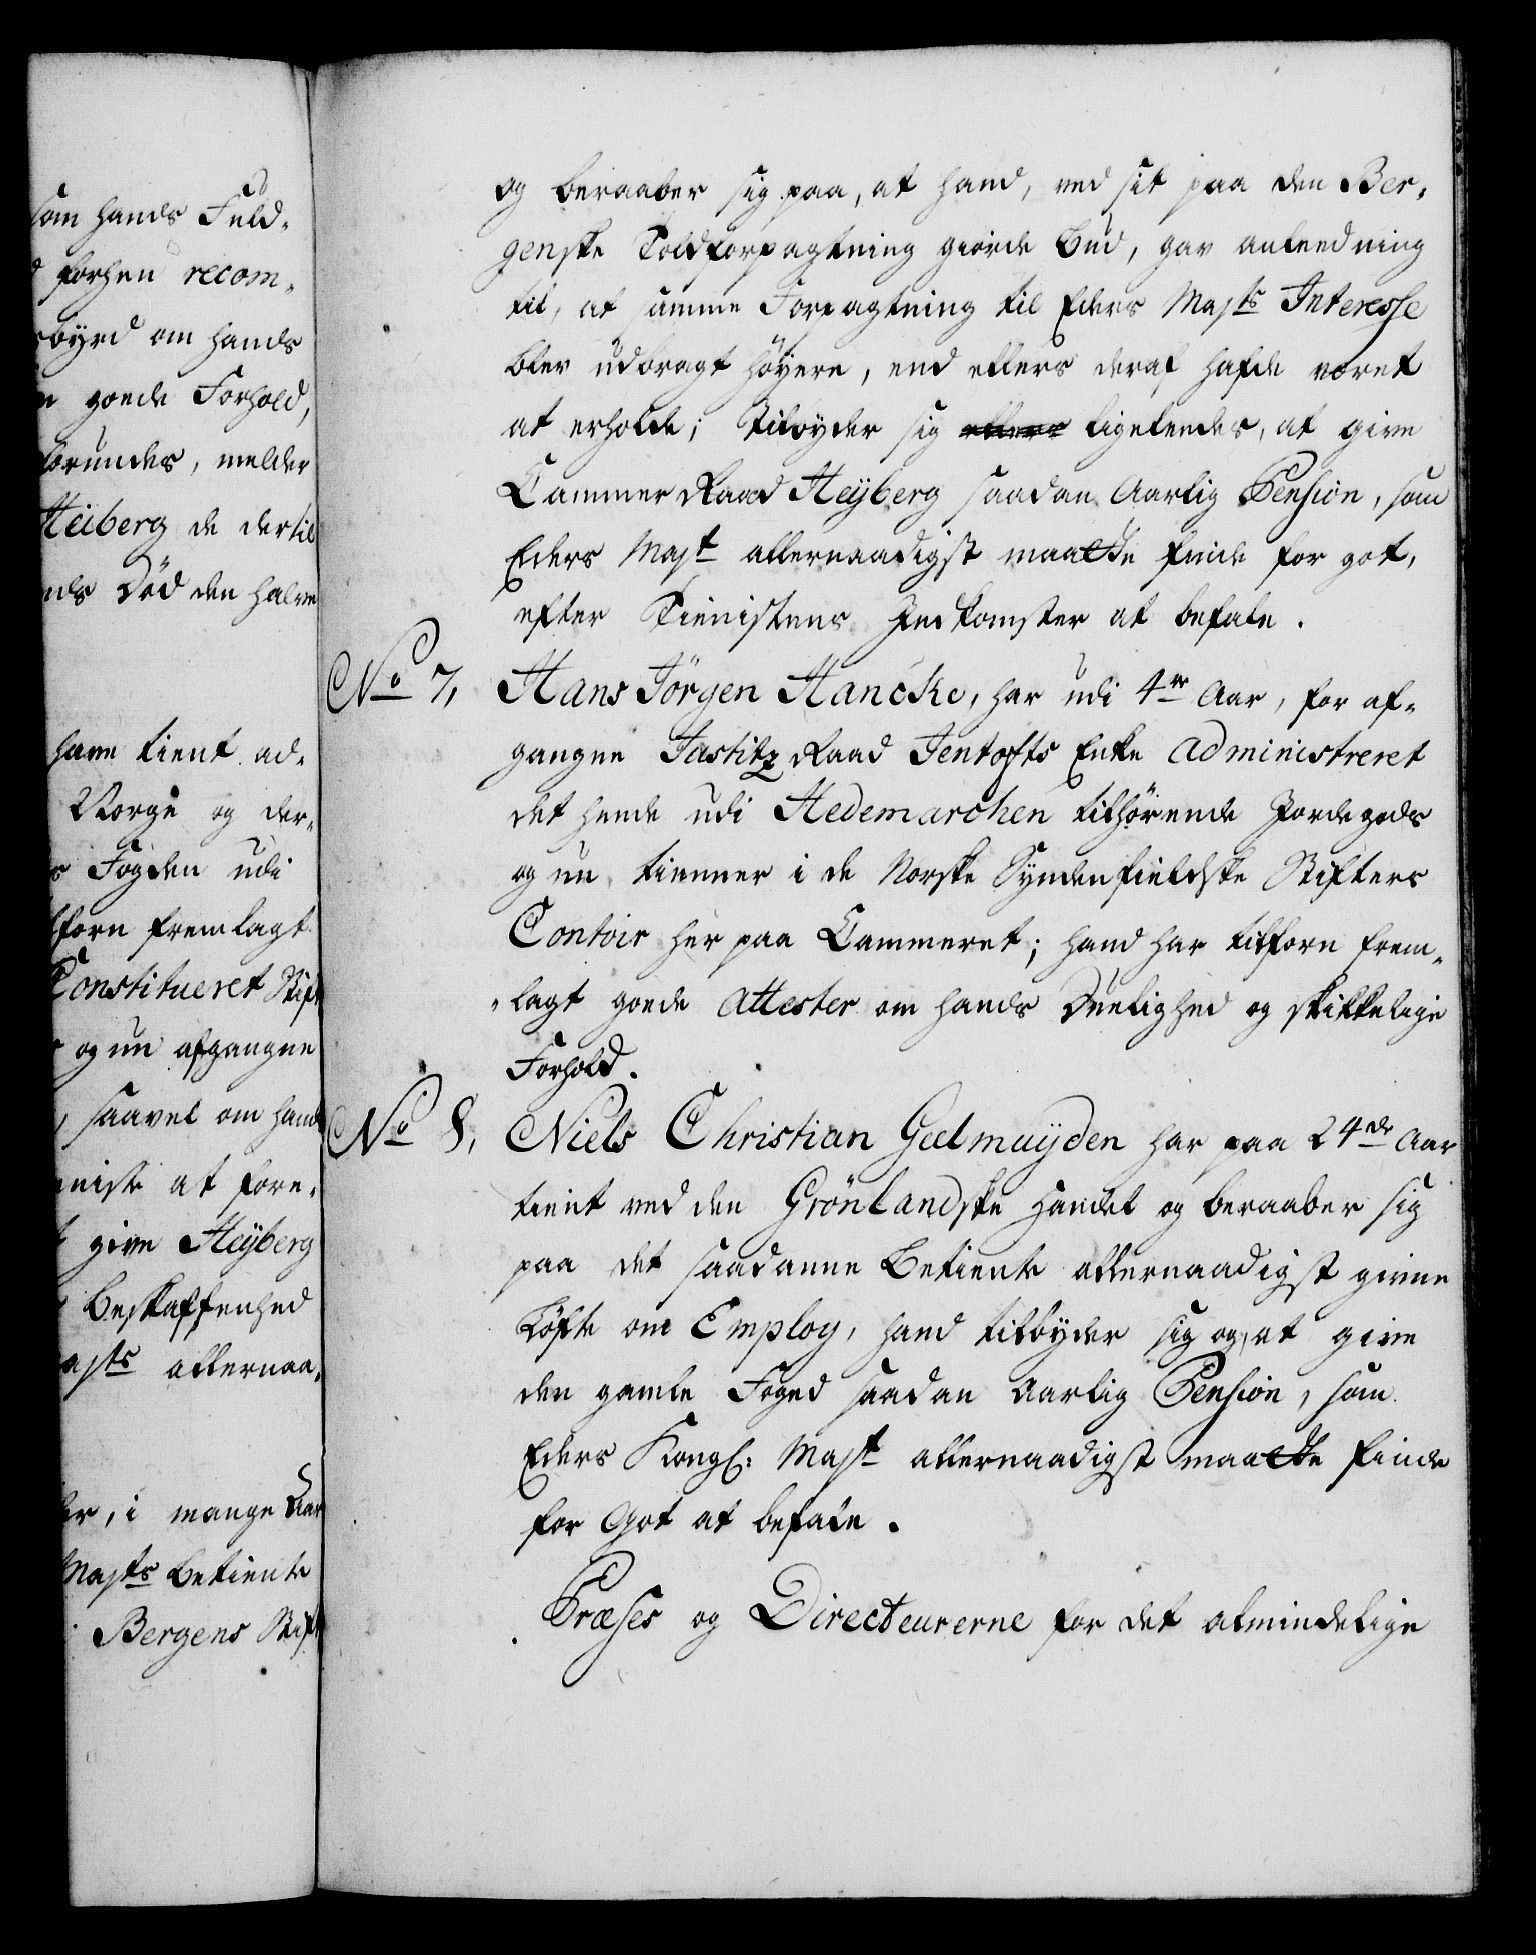 som hands Fuld-
forhen recom-
byrd om hands
goede Forhold,
brundes, melder
Heiberg de dertil
nds Död den halve
have tient ad-
Norge og der-
Fogden udi
forn fremlagt
Constitueret Stift
og nu afgangne
saavel om hands
niste at fore-
give Heÿberg
Beskaffenhed
ajts allernaa-
er, i mange Aar
Majts Betiente
Bergens Stift
og beraaber sig paa, at hand, ved sit paa den Ber-
genske Toldforpagtning giorde Bud, gav anleedning
til, at samme Forpagtning til Eders Majts Interesse
blev udbragt höyere, end ellers deraf hafde været
at erholde; Tilbyder sig ellers ligeleedes, at give
Cammer Raad Heÿberg saadan Aarlig Pension, som
Eders Majt allernaadigst maatte finde for got,
efter Tienistens Indkomster at befale.
No 7, Hans Jörgen Hancke, har udi 4re Aar, for af-
gangne Justitz Raad Jentofts Enke administreret
det hende udi Hedemarchen tilhörende Jordegods
og nu tienner i de Norske Syndenfieldske Stifters
Contoir her paa Cammeret; hand har tilforn frem-
-lagt goede Attester om hands Duelighed og skikkelige
Forhold.
No 8, Niels Christian Geelmuÿden har paa 24de Aar
tient ved den Grönlandske Handel og beraaber sig
paa det saadanne Betiente allernaadigst givne
Löfte om Employ, hand tilbyder sig og, at give
den gamle Foged saadan Aarlig Pension, som
Eders Kongl: Majt allernaadigst maatte finde
for Got at befale.
Præses og Directeurerne for det almindelige